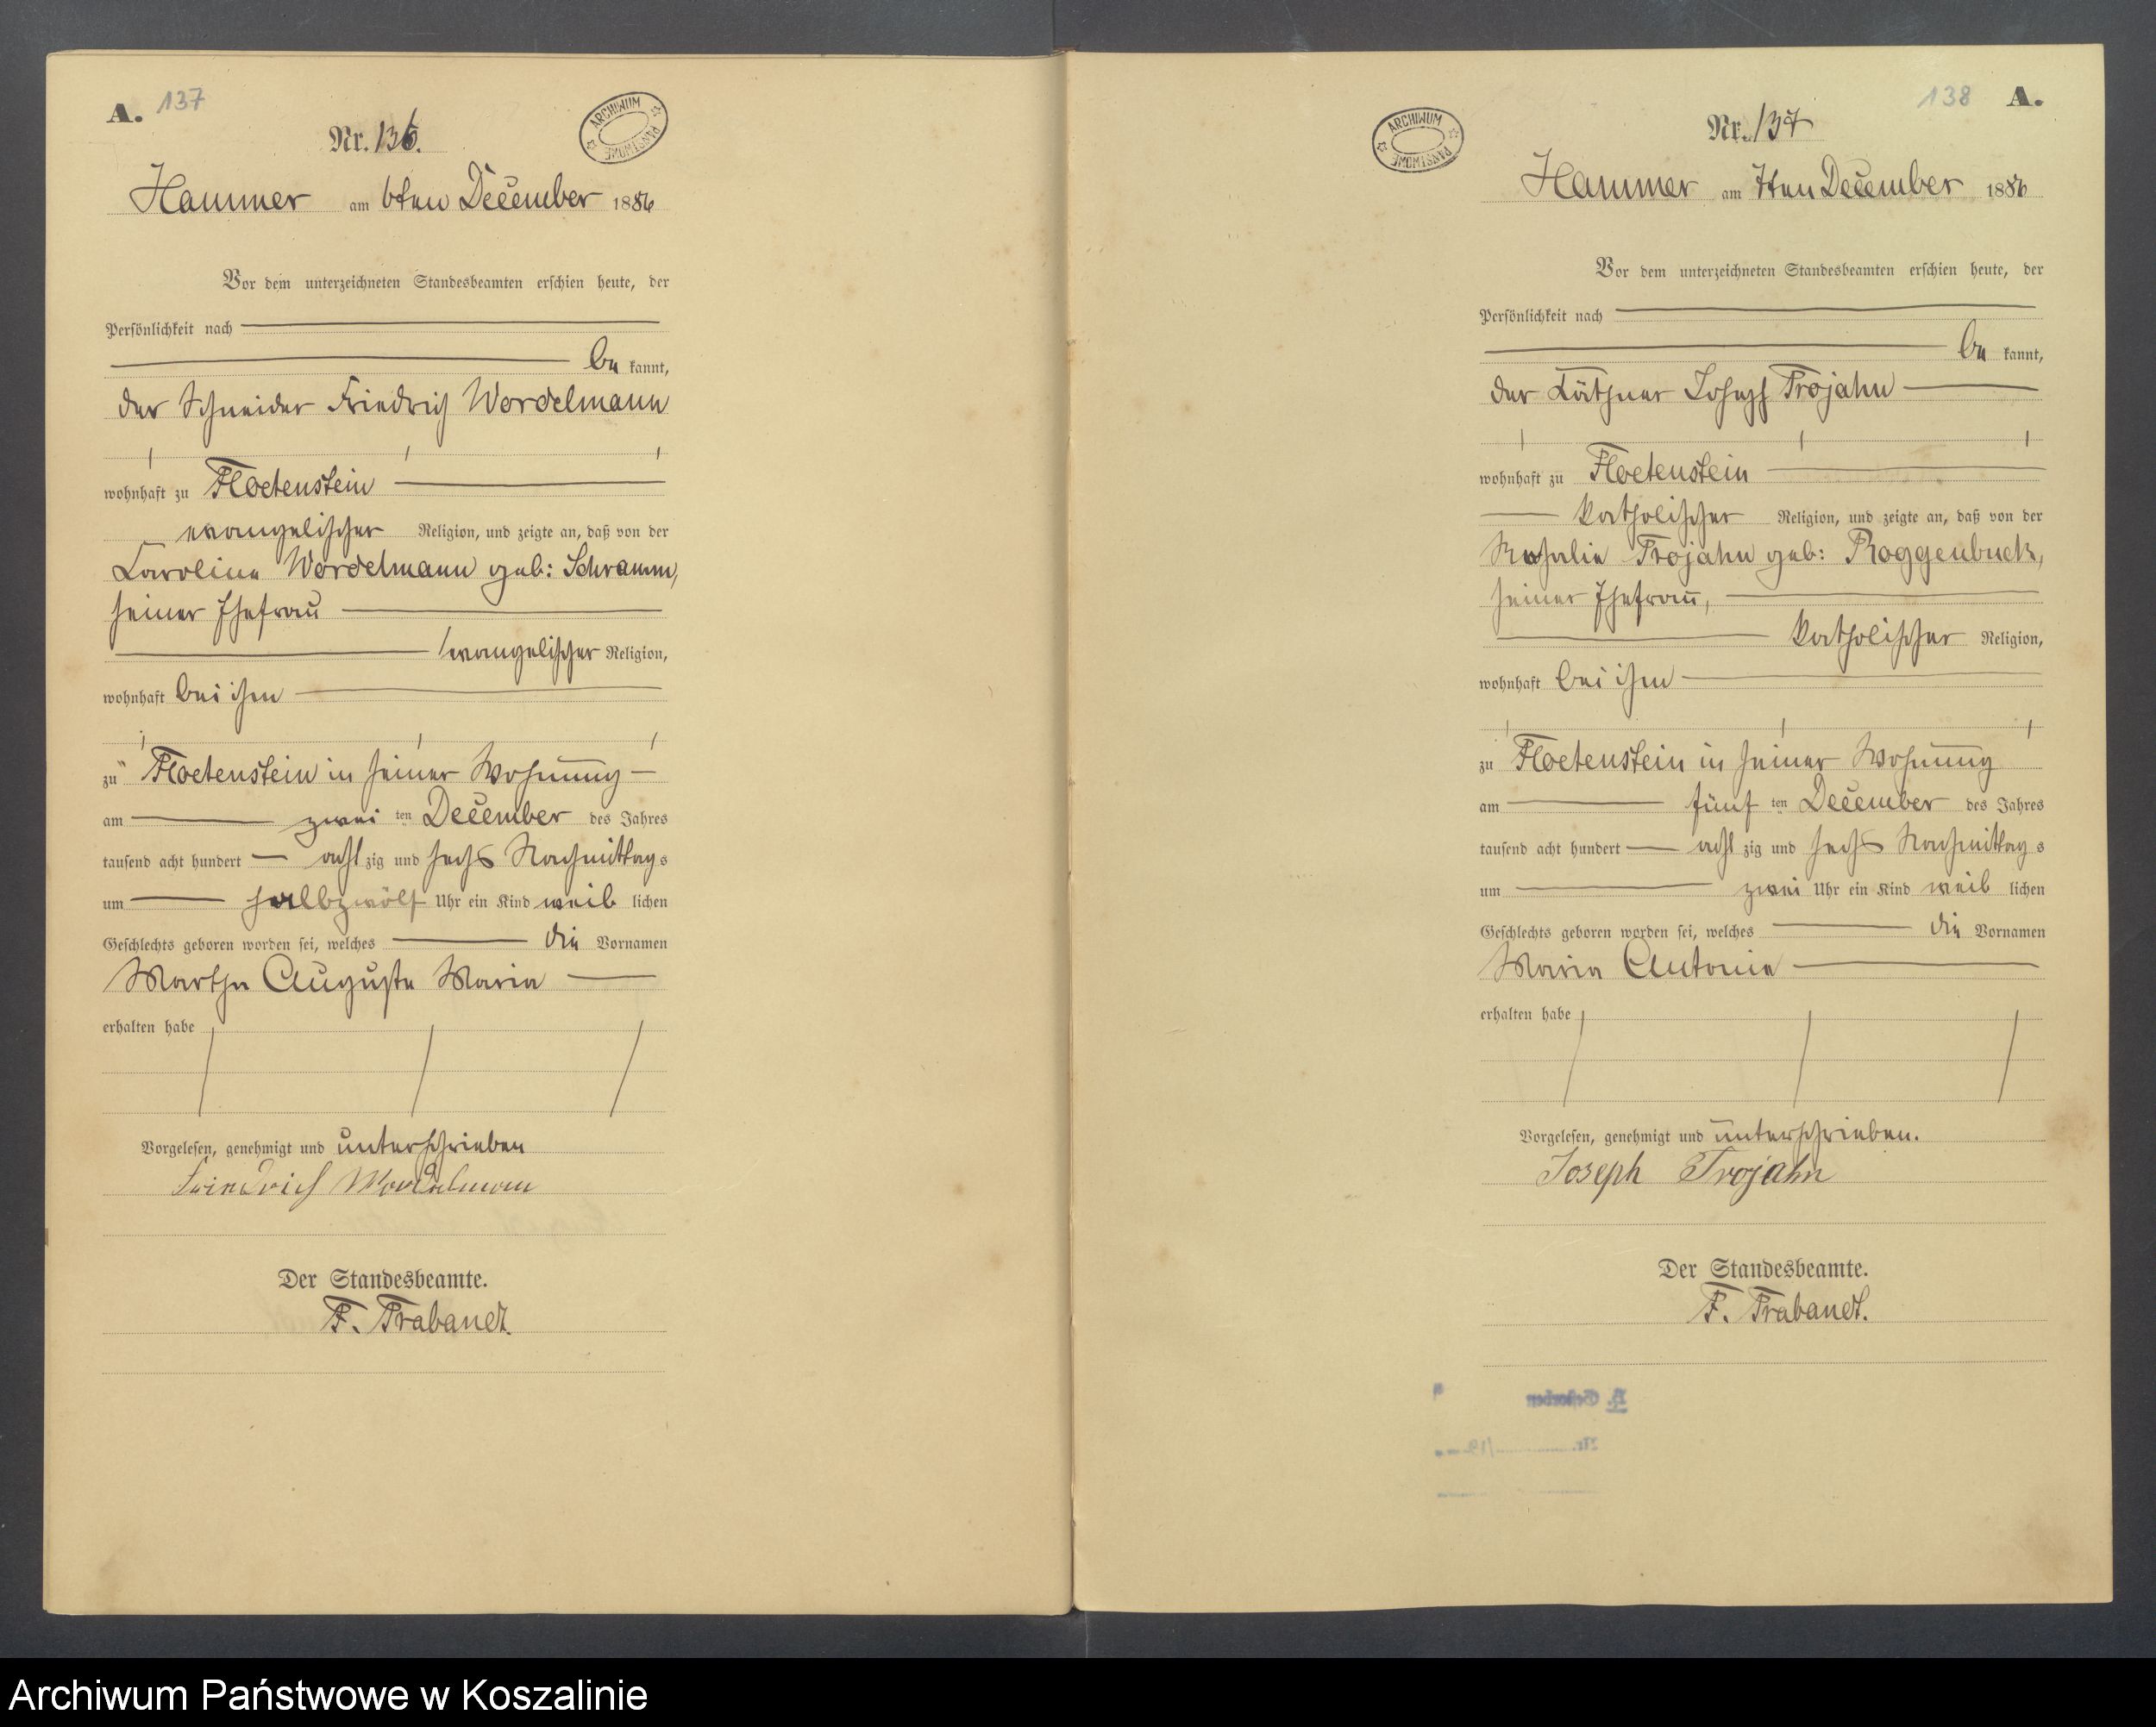 A. 137
Nr. 136.
ARCHIWUM PAŃSTWOWE
Hammer am 6ten December 1886
Vor dem unterzeichneten Standesbeamten erschien heute, der
Persönlichkeit nach
be kannt,
der Schneider Friedrich Wordelmann
wohnhaft zu Floetenstein
evangelischer Religion, und zeigte an, daß von der
Caroline Wordelmann geb: Schramm,
seiner Ehefrau
evangelischer Religion,
wohnhaft bei ihm
zu Floetenstein in seiner Wohnung
am zwei ten December des Jahres
tausend acht hundert acht zig und sechs Nachmittags
um halbzwölf Uhr ein Kind weib lichen
Geschlechts geboren worden sei, welches die Vornamen
Martha Auguste Maria
erhalten habe
Vorgelesen, genehmigt und unterschrieben
Friedrich Wordelmann
Der Standesbeamte.
F. Trabandt.
138 A.
Nr. 137
ARCHIWUM PAŃSTWOWE
Hammer am 7ten December 1886
Vor dem unterzeichneten Standesbeamten erschien heute, der
Persönlichkeit nach
be kannt,
der Käthner Joseph Trojahn
wohnhaft zu Floetenstein
katholischer Religion, und zeigte an, daß von der
Rosalie Trojahn geb: Roggenbuck,
seiner Ehefrau,
katholischer Religion,
wohnhaft bei ihm
zu Floetenstein in seiner Wohnung
am fünf ten December des Jahres
tausend acht hundert acht zig und sechs Nachmittags
um zwei Uhr ein Kind weib lichen
Geschlechts geboren worden sei, welches die Vornamen
Maria Antonie
erhalten habe
Vorgelesen, genehmigt und unterschrieben.
Joseph Trojahn
Der Standesbeamte.
F. Trabandt.
Archiwum Państwowe w Koszalinie